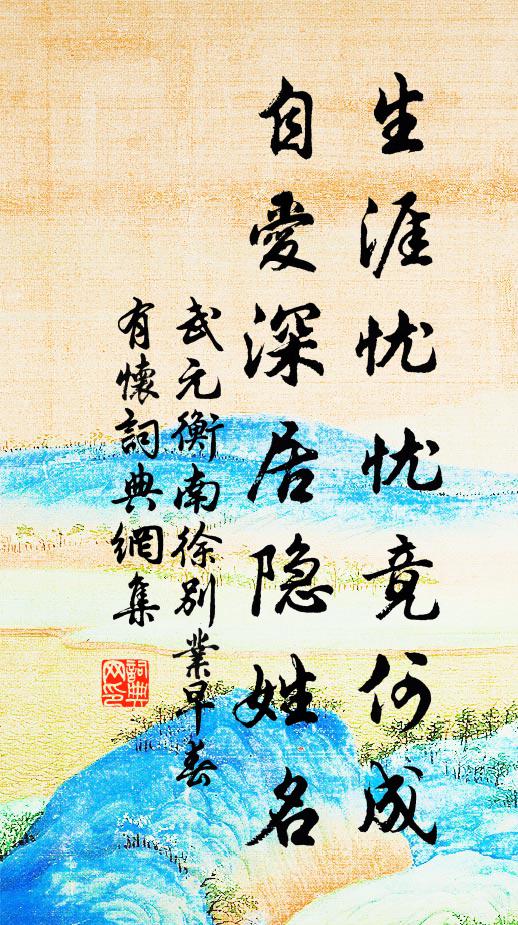 生涯忧忧竟何成
自愛深居隐姓名
武元衡南徐别業早春
有懷詞典網集
詞典网印